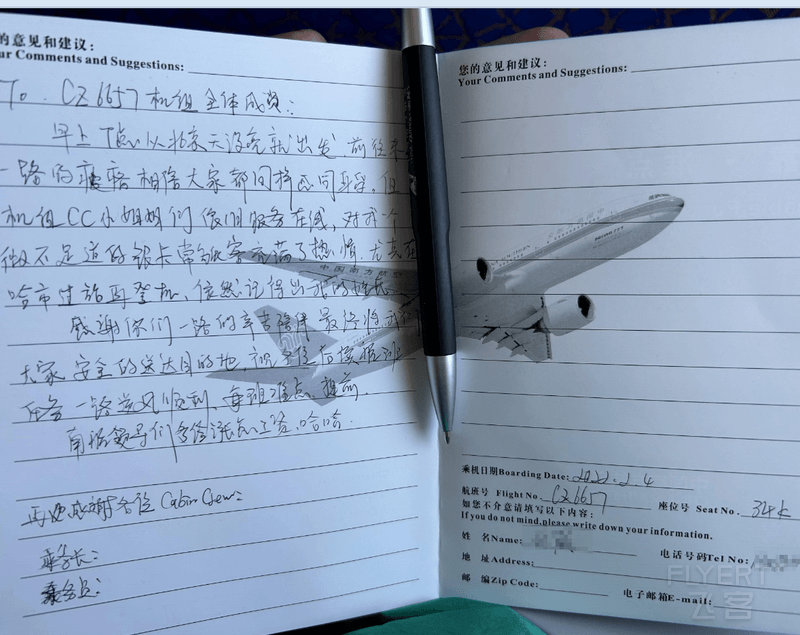 的意见和建议：
ur Comments and Suggestions:
To CZ6657机组全体成员：
早上7点从北京天没亮就出发，前往来
一路的疲惫相信大家都同样感同身受，但
机组CC小姐姐们依旧服务在线，对我一个
微不足道的银卡常旅客充满了热情，尤其在
哈市过站再登机，依然记得出我的姓氏
感谢你们一路的辛苦陪伴最终将我们
大家安全的送达目的地，祝各位后续航班
任务一路逆风顺利，每班准点、提前
南航领导们多给涨点工资，哈哈.
再次感谢各位Cabin Crew:
乘务长：
乘务员：
中国南方航空
您的意见和建议：
Your Comments and Suggestions:
乘机日期Boarding Date: 2022.2.4
航班号 Flight No. CZ6657 座位号 Seat No. 34K
如您不介意请填写以下内容：
If you do not mind,please write down your information.
姓 名Name: 电话号码Tel No:
地 址Address:
邮 编Zip Code: 电子邮箱E-mail:
FLYERT
飞客